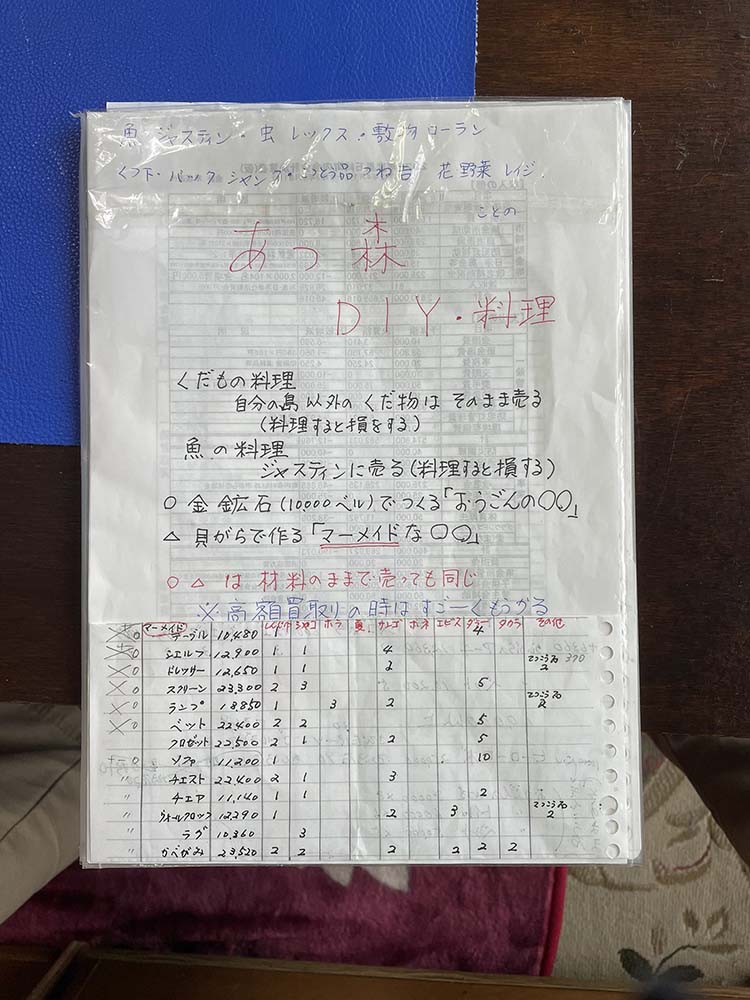 魚 ジャスティン・虫 レックス・敷物 ローラン
くつ下・バック シャンク・こっとう品 つね吉 花 野菜 レイジ
ことの
あつ森
DIY・料理
くだもの料理
自分の島以外のくだ物はそのまま売る
(料理すると損をする)
魚の料理
ジャスティンに売る(料理すると損する)
○ 金鉱石(10,000ベル)でつくる「おうごんの○○」
△ 貝がらで作る「マーメイドな○○」
○△は材料のままで売っても同じ
※高額買取りの時はすごーくもうかる
マーメイド シャコ ホラ 夏 サンゴ ホネ エビス タカラ その他
テーブル 10,480 1 4
シェルフ 12,900 1 1 4
ドレッサー 12,650 1 1 2 てっこう石 2 370
スクリーン 23,300 2 3 5
ランプ 13,850 1 3 2 てっこう石 2
ベット 22,400 2 2 5
クロゼット 22,500 2 1 2 5
ソファ 11,200 1 10
〃 チェスト 22,400 2 1 3
〃 チェア 11,140 1 1 2
〃 ウォールクロック 12,290 1 2 3 てっこう石 2
〃 ラグ 10,360 3
〃 かべがみ 23,520 2 2 2 2 2 2